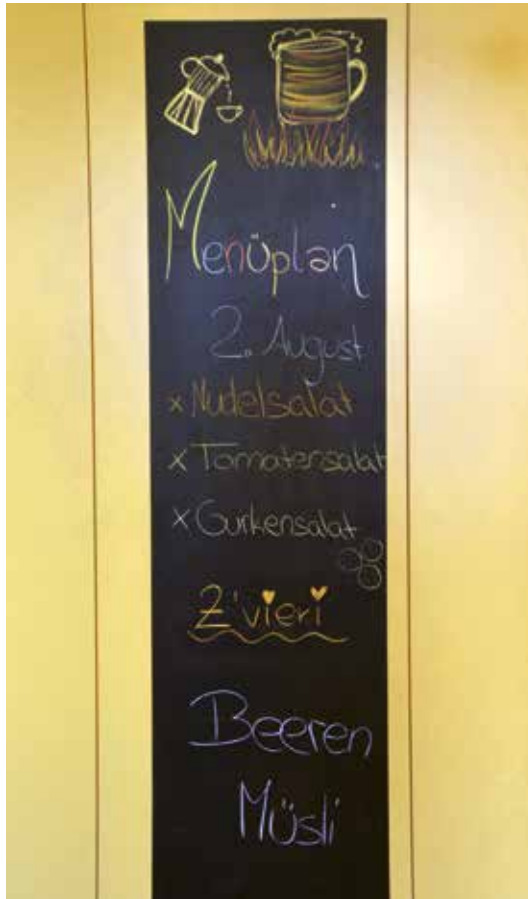 Menüplan
2. August
x Nudelsalat
x Tomatensalat
x Gurkensalat
Z'vieri
Beeren
Müsli